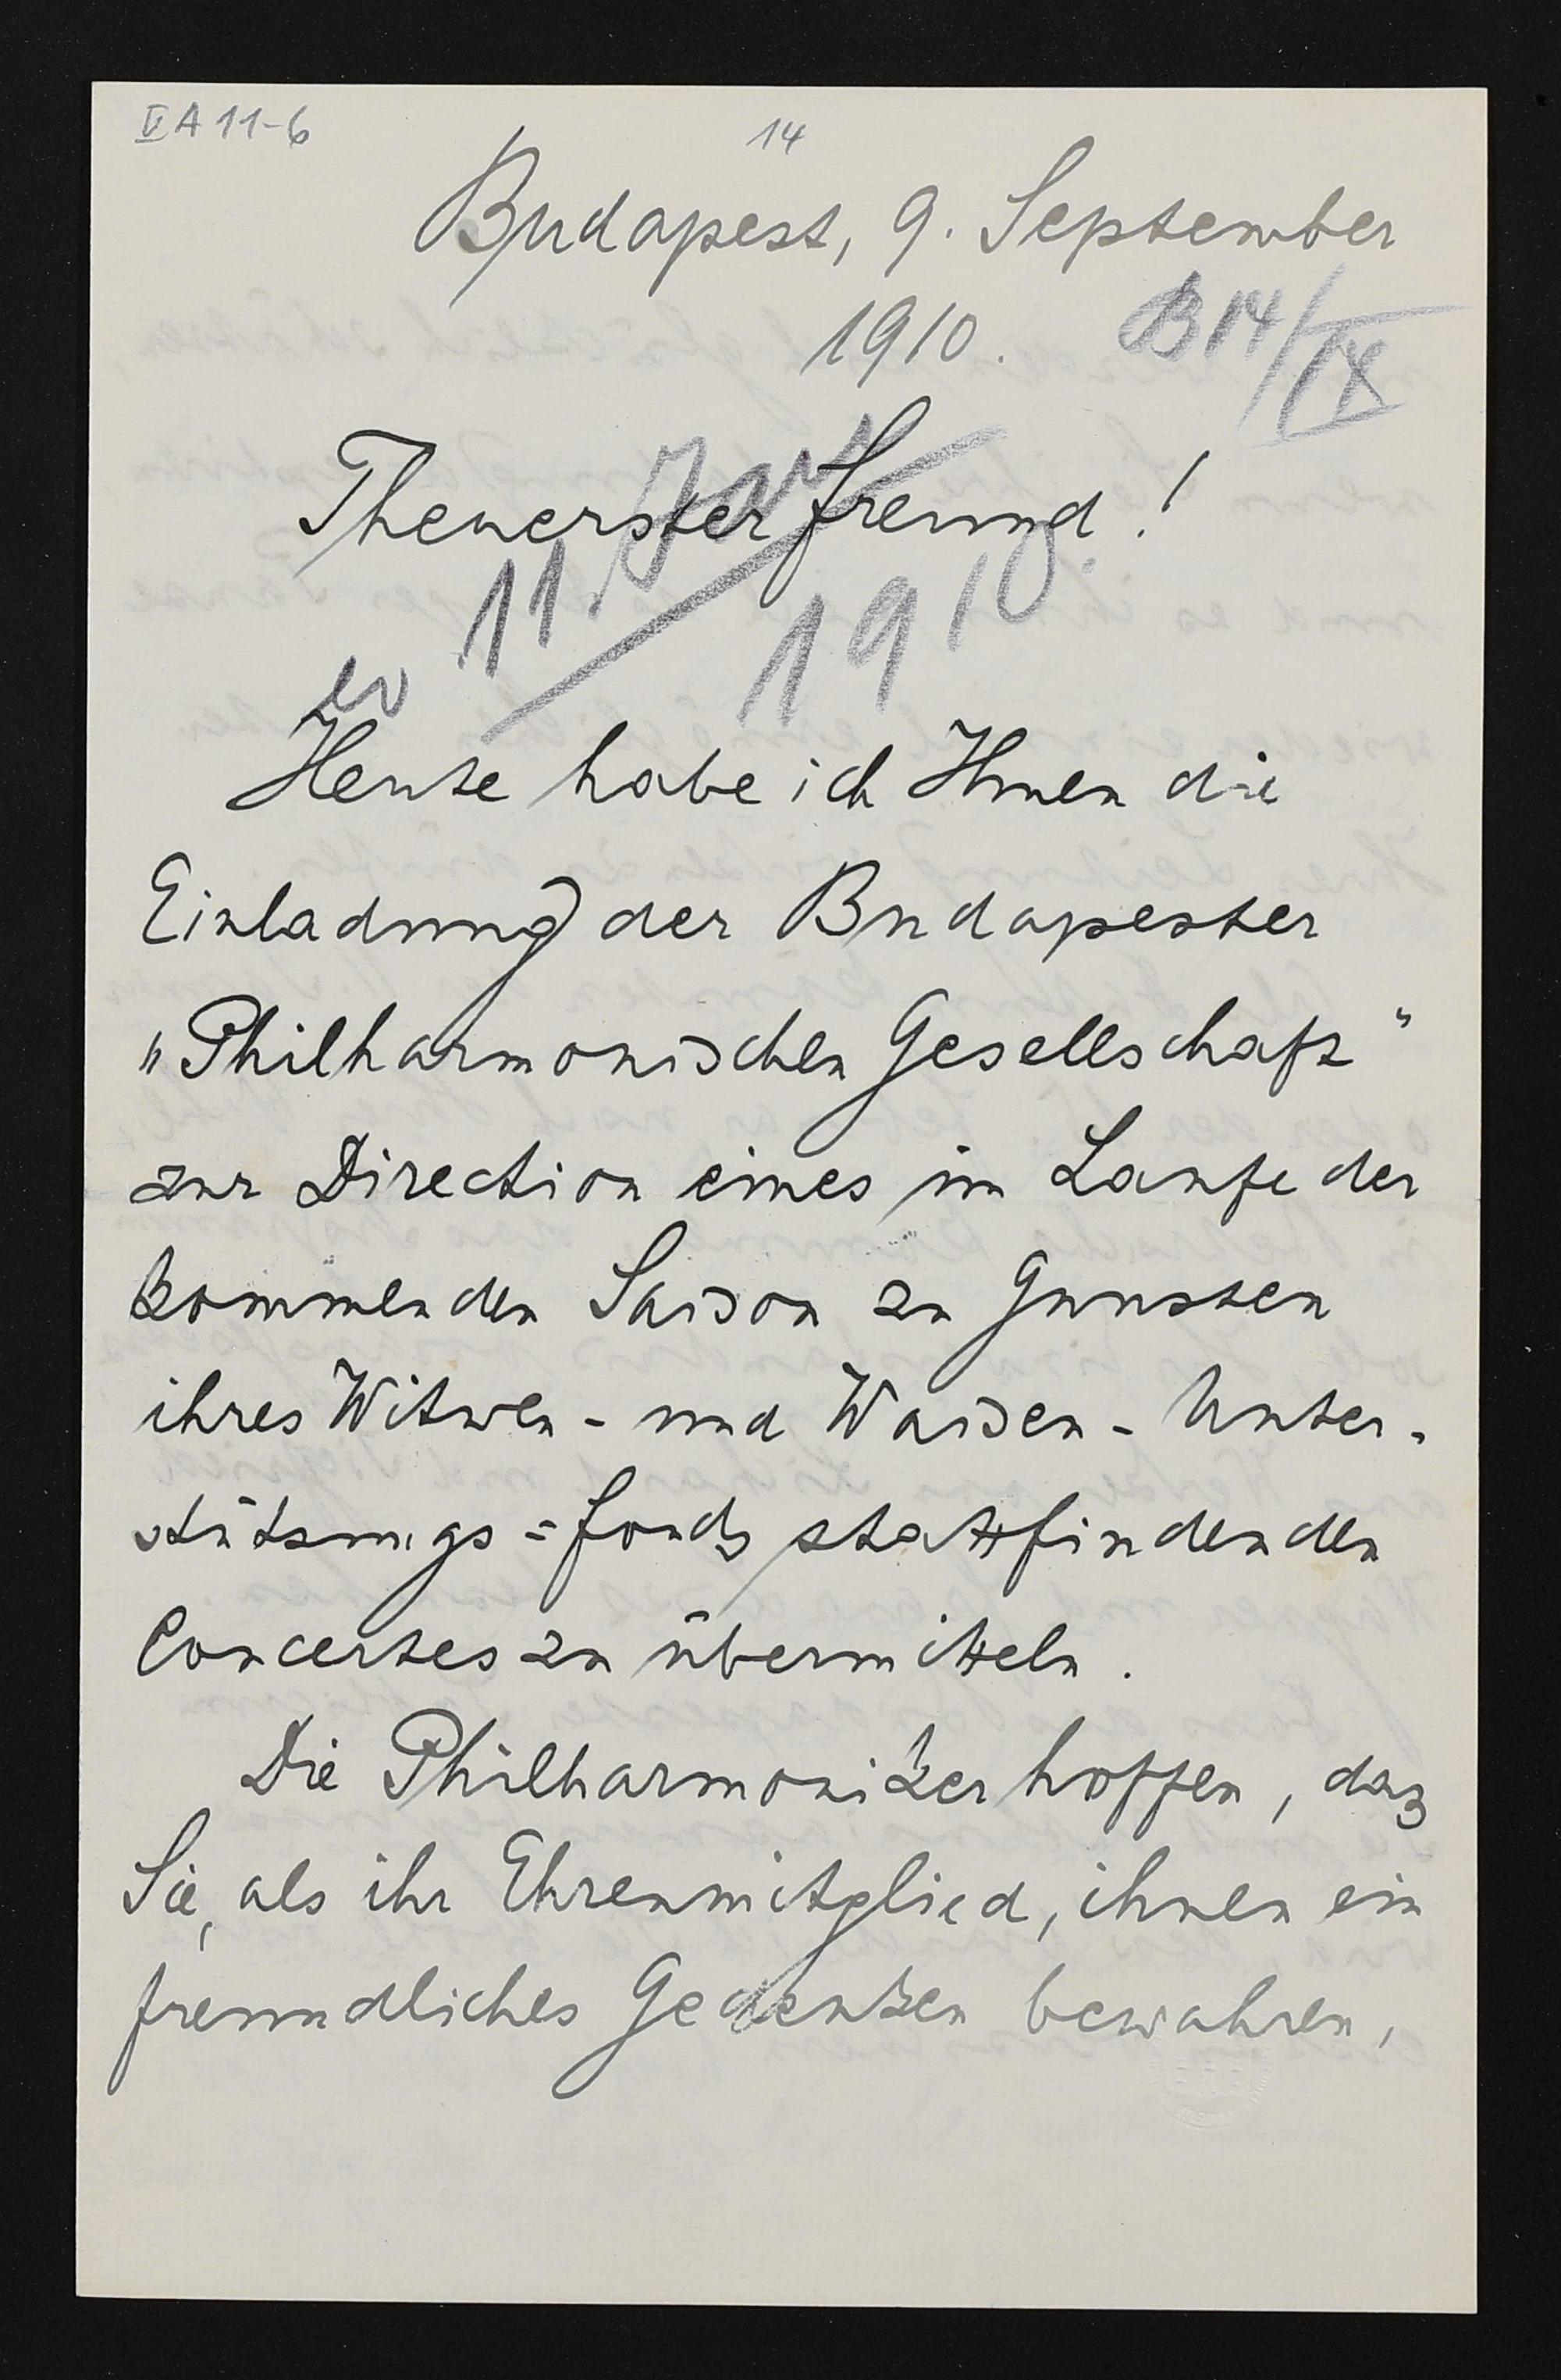 V A 11-6
14
Budapest, 9. September
1910.
B 14/IX
Theuerster Freund!
11. Jan
1910
ev
Heute habe ich Ihnen die
Einladung der Budapester
„Philharmonischen Gesellschaft“
zur Direction eines im Laufe der
kommenden Saison zu Gunsten
ihres Witwen- und Waisen-Unter-
stützungs=Fonds stattfindenden
Concertes zu übermitteln.
Die Philharmoniker hoffen, daß
Sie, als ihr Ehrenmitglied, ihnen ein
freundliches Gedenken bewahren,